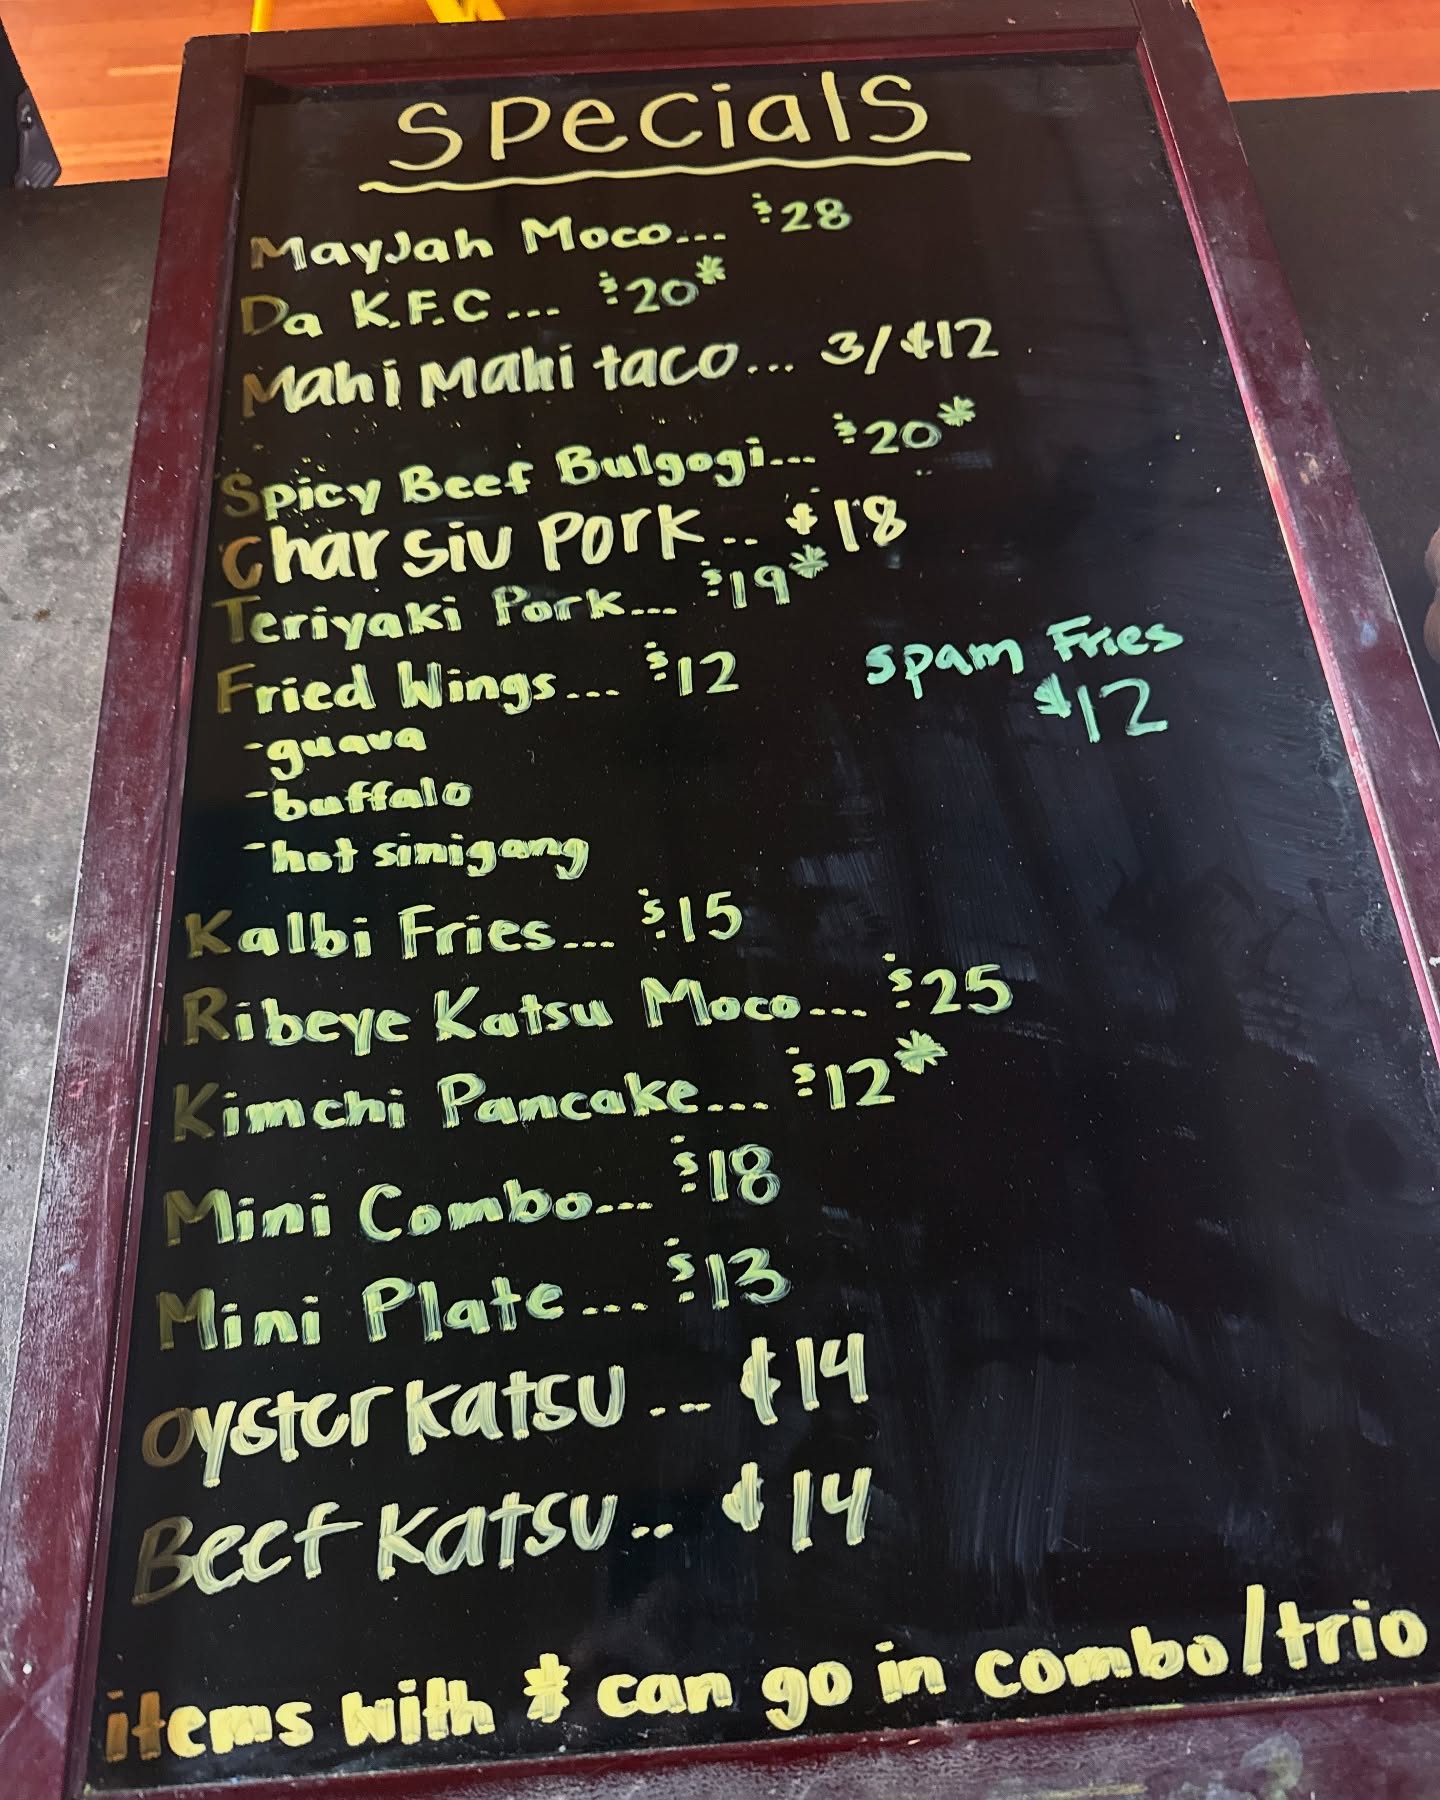 Specials
MayJah Moco... $28
Da K.F.C... $20*
Mahi Mahi taco... 3/$12
Spicy Beef Bulgogi... $20*
Char siu Pork.. $18
Teriyaki Pork... $19*
Fried Wings... $12
-guava
-buffalo
-hot sinigang
Spam Fries
$12
Kalbi Fries... $15
Ribeye Katsu Moco... $25
Kimchi Pancake... $12*
Mini Combo... $18
Mini Plate... $13
oyster Katsu... $14
Beef Katsu.. $14
items with * can go in combo/trio